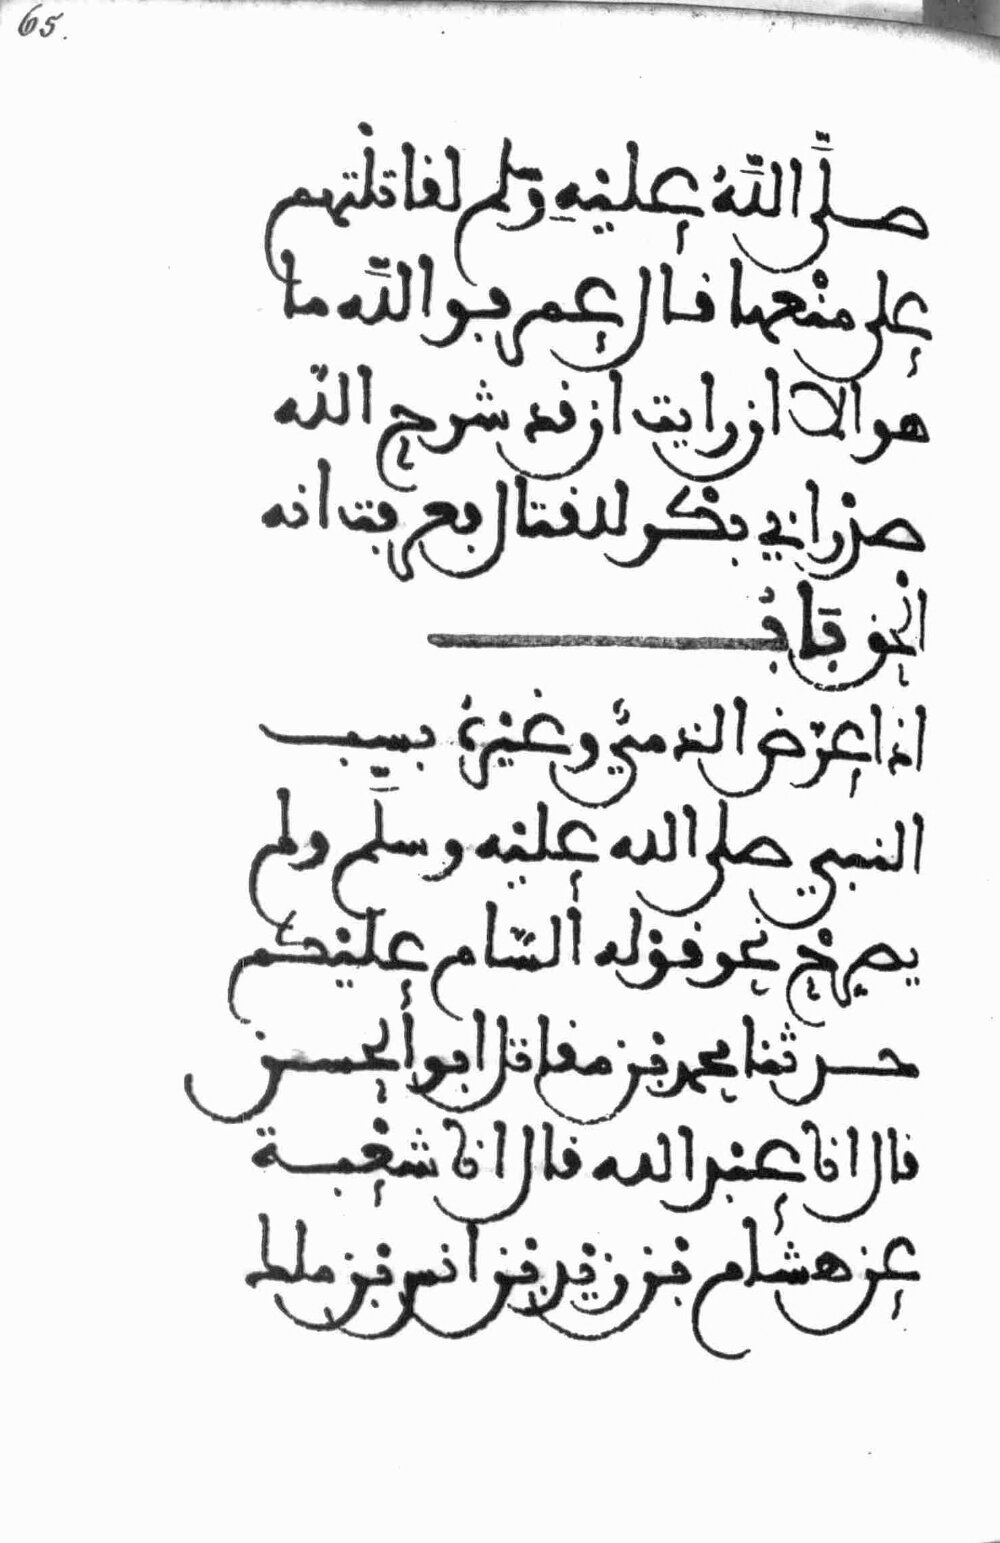 65.
صلَّى اللّهُ علَيْهِ وسّلم لقاتلْتهم
على منْعها قال عمر فو اللّه ما
هو الا ان رايت ان قد شرح اللّه
صدْر ابي بكْر للقتال فعرفت انه
الحْق بَابُ
اذا عرّض الذمّي وغيْرُهُ بسب
النبي صلى الله عليْه وسلَّم ولم
يصرحْ نحو قوْله السّام عليْكم
حدثنا محمد بْن مقاتل ابو الحسن
قال انا عبْد الله قال انا شعْبة
عن هشام بْن زيْد بْن انس بْن ملك